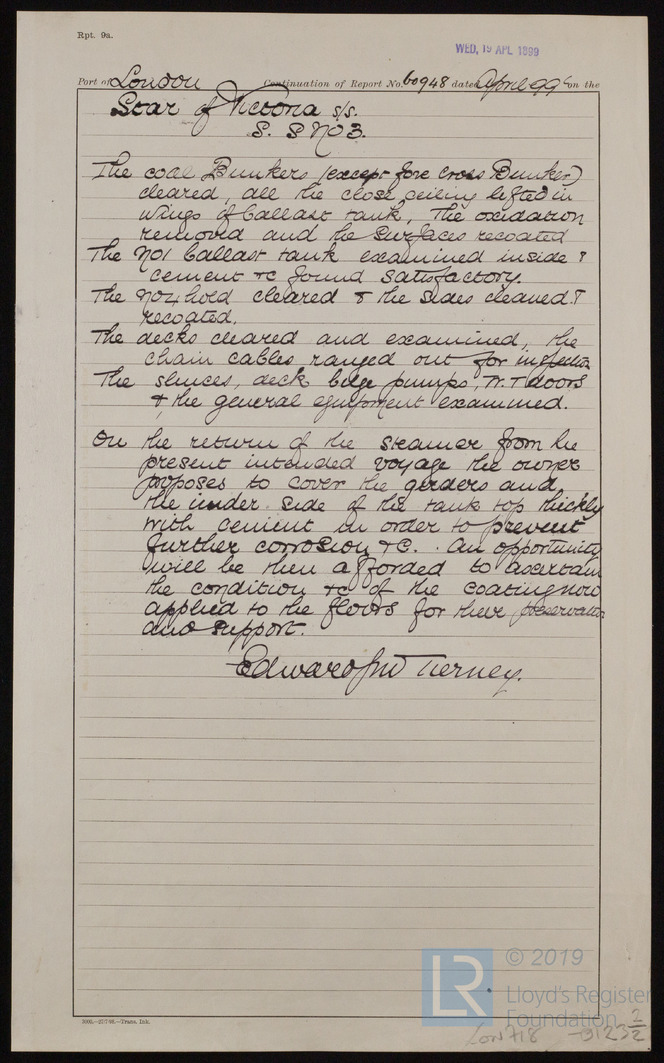 Rpt. 9a.
WED, 19 APL 1899
Port of London Continuation of Report No. 60948 dated April 99 on the
Star of Victoria s/s.
S. S No 3.
The coal Bunkers (except fore cross Bunker)
cleared, all the close ceiling lifted in
wings of ballast tank, The oxidation
removed and the surfaces recoated
The No 1 ballast tank examined inside &
cement &c found satisfactory.
The No 4 hold cleared & the sides cleaned &
recoated.
The decks cleared and examined, the
chain cables ranged out for inspection
The sluices, deck bilge pumps, W.T doors
& the general equipment examined.
On the return of the steamer from the
present intended voyage the owner
proposes to cover the girders and
the under side of the tank top thickly
with cement in order to prevent
further corrosion &c. An opportunity
will be then afforded to ascertain
the condition &c of the coating now
applied to the floors for their preservation
and support.
Edward Tierney.
© 2019
LR
Lloyd's Register
Foundation
Trans. Ink.